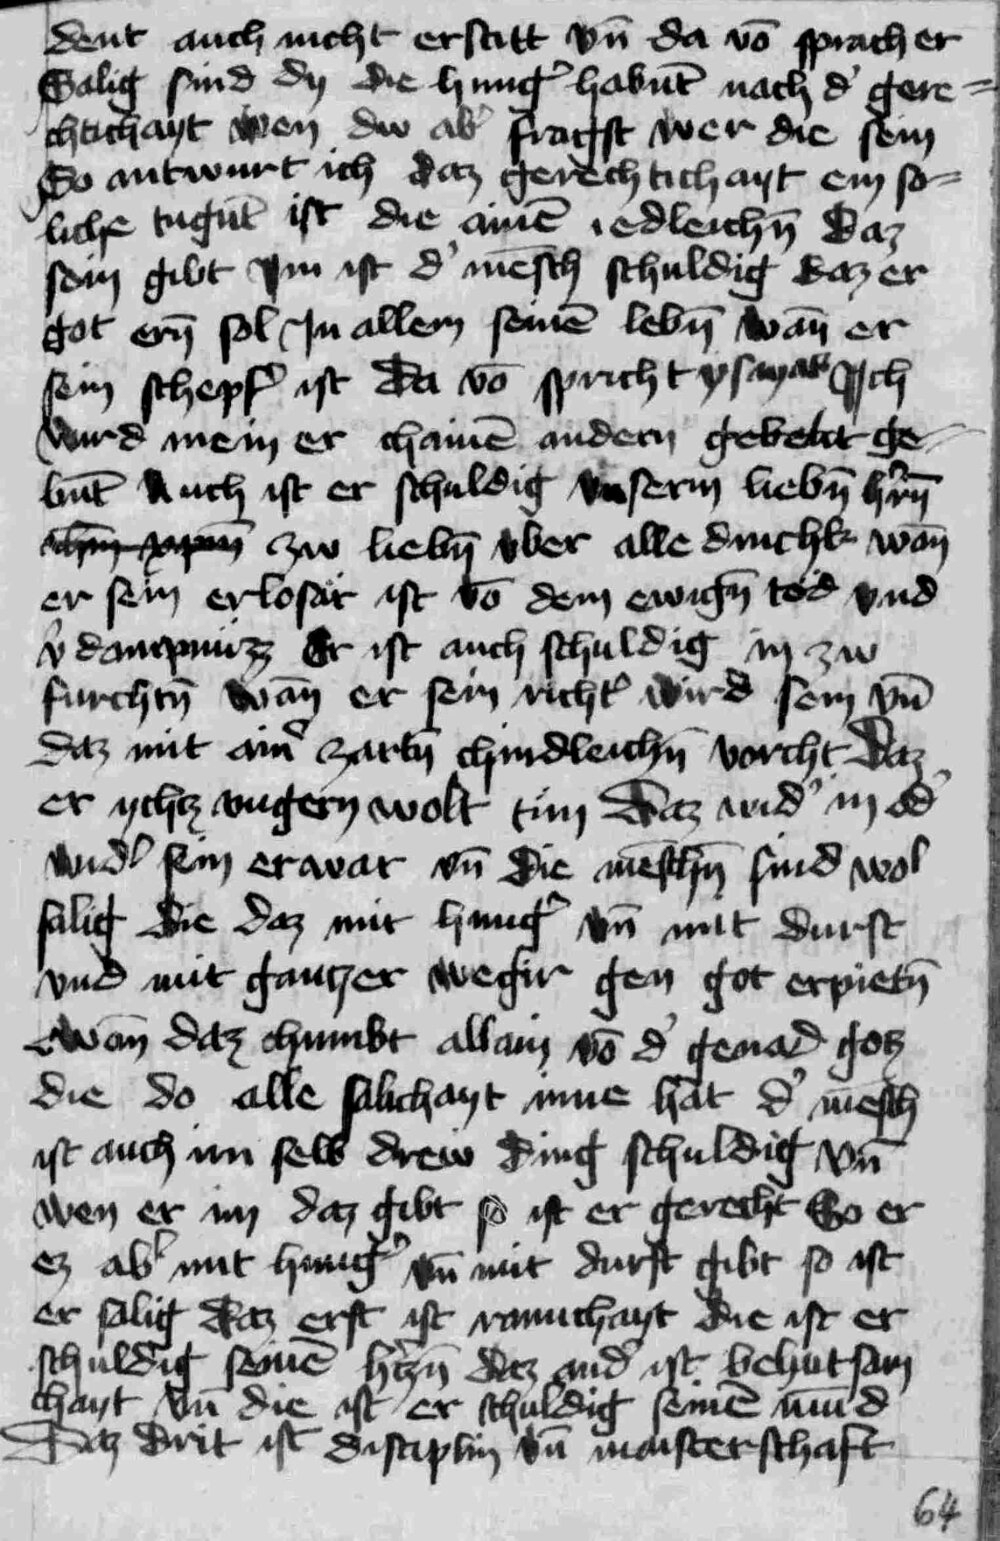 dent auch nicht ersatt vn̄ da vō sprach er
Salig sind dy die hung̛ habnt̄ nach d̛ gere=
chtichayt wen dw ab̛ fragst wer die sein
So antwurt ich daz gerechtichayt ein so=
liche tugnt̄ ist die ainē iedleichn̄ daz
sein gibt Nu ist d̛ mēsch schuldig daz er
got ern̄ sol Jn allem seinē lebn̄ wan̄ er
sein schepf̛ ist Da vō spricht ysayas Jch
wird mein er chainē andern ge
bnt̄ Auch ist er schuldig vnserm liebn̄ hr̄n
zw liebn̄ vber alle dinchk wan̄
er sein erlosar ist vō dem ewign̄ tod vnd
v̛dampnüzz Er ist auch schuldig in zw
furchtn̄ wan̄ er sein richt̛ wird sein vn̄
daz mit ain̛ zartn̄ chindleichn̄ vorcht Daz
er ychtz vngern wolt tun Daz wid̛ in od̛
wid̛ sein er war vn̄ die mēschn̄ sind wol
salig die daz mit hung̛ vn̄ mit durst
vnd mit gantzer wegir gen got erpietn̄
wan̄ daz chumbt allain vō d̛ genad gotz
die do alle salichayt inne hat d̛ mēsch
ist auch im selb drew ding schuldig vn̄
wen er im daz gibt so ist er gerecht So er
ez ab̛ mit hung̛ vn̄ mit durst gibt so ist
er salig Daz erst ist rainichayt die ist er
schuldig seinē hr̄tzn̄ daz and̛ ist behutsam
chayt vn̄ die ist er schuldig seinē mūd
Daz drit ist disciplin vn̄ maisterschaft
64